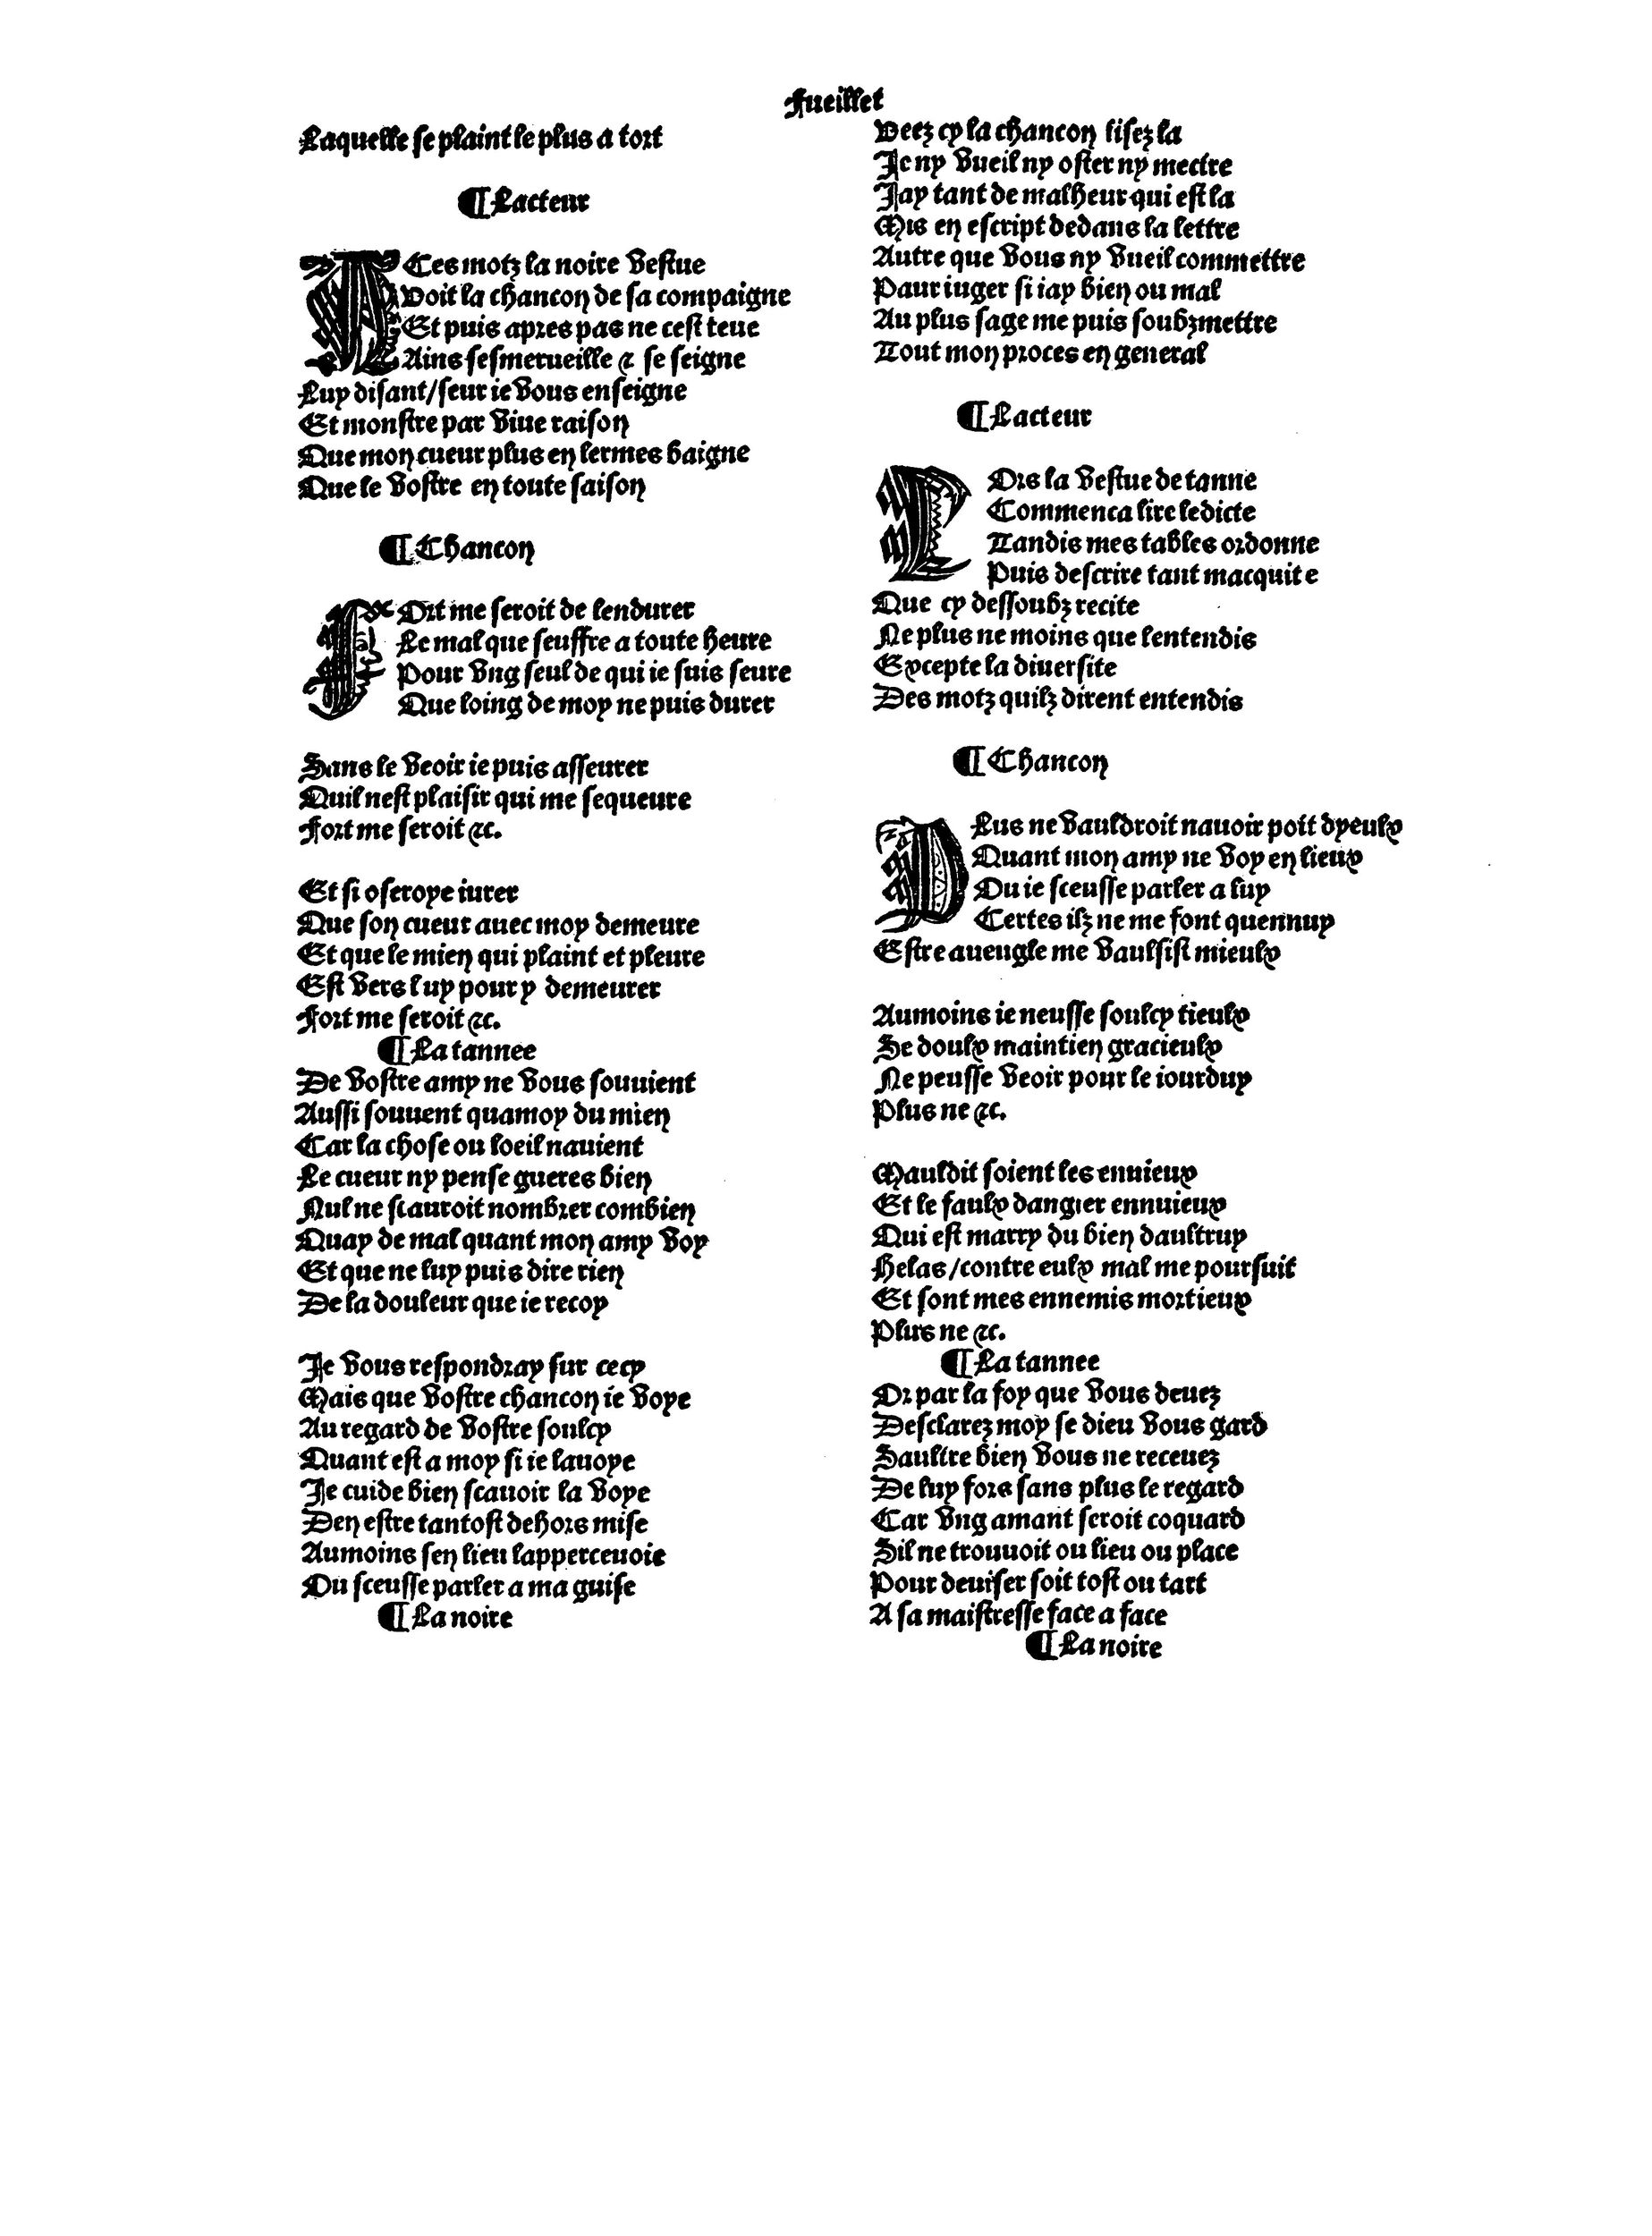 Fueillet
Laquelle se plaint le plus a tort
¶ Lacteur
A Ces motz la noire vestue
Voit la chancon de sa compaigne
Et puis apres pas ne cest teue
Ains sesmerueille & se seigne
Luy disant/seur ie vous enseigne
Et monstre par viue raison
Que mon cueur plus en lermes baigne
Que le vostre en toute saison
¶ Chancon
FOrt me seroit de lendurer
Le mal que seuffre a toute heure
Pour vng seul de qui ie suis seure
Que loing de moy ne puis durer
Sans le veoir ie puis asseurer
Quil nest plaisir qui me sequeure
Fort me seroit &c.
Et si oseroye iurer
Que son cueur auec moy demeure
Et que le mien qui plaint et pleure
Est vers luy pour y demeurer
Fort me seroit &c.
¶ La tannee
De vostre amy ne vous souuient
Aussi souuent quamoy du mien
Car la chose ou loeil nauient
Le cueur ny pense gueres bien
Nul ne scauroit nombrer combien
Quay de mal quant mon amy voy
Et que ne luy puis dire rien
De la douleur que ie recoy
Je vous respondray sur cecy
Mais que vostre chancon ie voye
Au regard de vostre soulcy
Quant est a moy si ie lauoye
Je cuide bien scauoir la voye
Den estre tantost dehors mise
Aumoins sen lieu lapperceuoie
Ou sceusse parler a ma guise
¶ La noire
Veez cy la chancon lisez la
Je ny vueil ny oster ny mectre
Jay tant de malheur qui est la
Mis en escript dedans la lettre
Autre que vous ny vueil commettre
Paur iuger si iay bien ou mal
Au plus sage me puis soubzmettre
Tout mon proces en general
¶ Lacteur
LOrs la vestue de tanne
Commenca lire ledicte
Tandis mes tables ordonne
Puis descrire tant macquite
Que cy dessoubz recite
Ne plus ne moins que lentendis
Excepte la diuersite
Des motz quilz dirent entendis
¶ Chancon
PLus ne vauldroit nauoir poit dyeulx
Quant mon amy ne voy en lieux
Ou ie sceusse parler a luy
Certes ilz ne me font quennuy
Estre aueugle me vaulsist mieulx
Aumoins ie neusse soulcy tieulx
Se doulx maintien gracieulx
Ne peusse veoir pour le iourduy
Plus ne &c.
Mauldit soient les ennieux
Et le faulx dangier ennuieux
Qui est marry du bien daultruy
Helas/contre eulx mal me poursuit
Et sont mes ennemis mortieux
Plus ne &c.
¶ La tannee
Or par la foy que vous deuez
Desclarez moy se dieu vous gard
Saultre bien vous ne receuez
De luy fors sans plus le regard
Car vng amant seroit coquard
Sil ne trouuoit ou lieu ou place
Pour deuiser soit tost ou tart
A sa maistresse face a face
¶ La noire